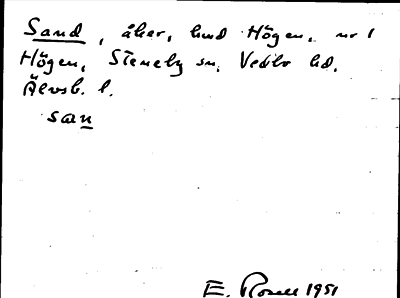 Sand, åker, hmd Högen, nr 1
Högen, Steneby sn, Vedbo hd,
Älvsb. l.
san
E. Rosell 1951